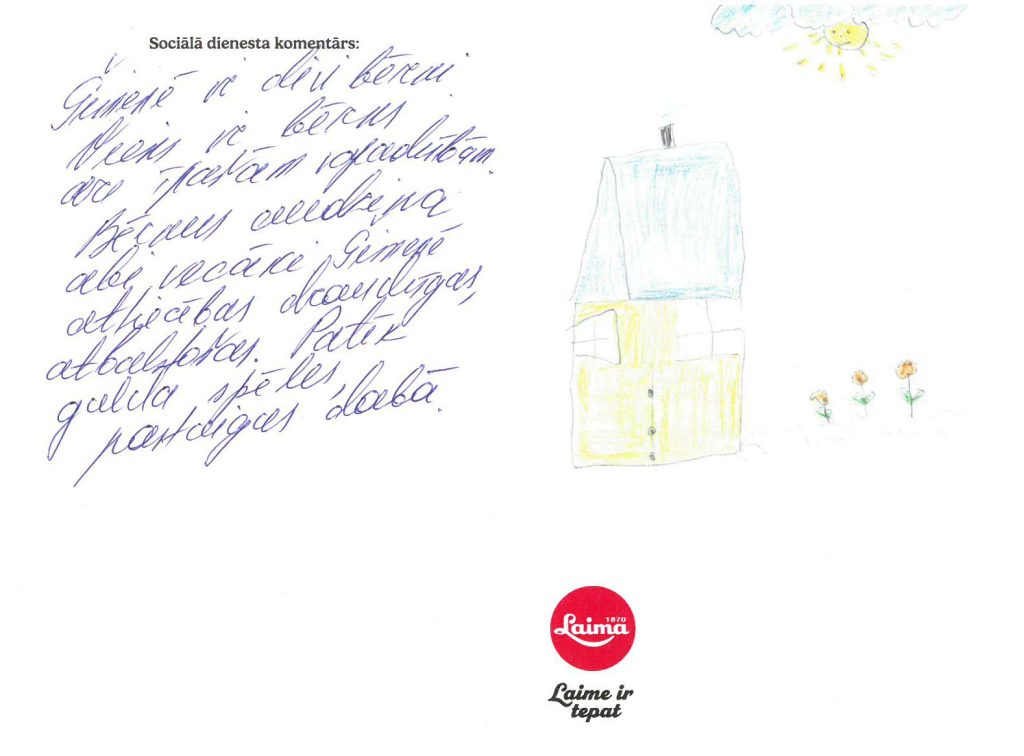 Sociālā dienesta komentārs:
Ģimenē ir divi bērni.
Viens ir bērns
ar īpašām vajadzībām.
Bērnus audzina
abi vecāki. Ģimenē
attiecības draudzīgas,
atbalstošas. Patīk
galda spēles,
pastaigas dabā.
Laima
1870
Laime ir
tepat